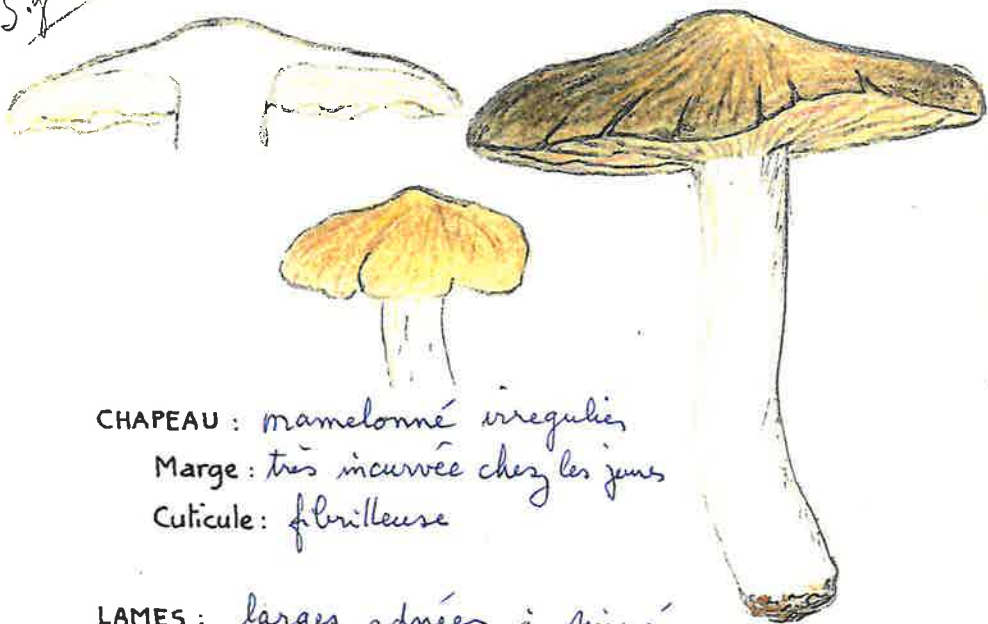 CHAPEAU : mamelonné irregulier
Marge : très incurvée chez les jeunes
Cuticule : fibrilleuse
LAMES : larges adnées à